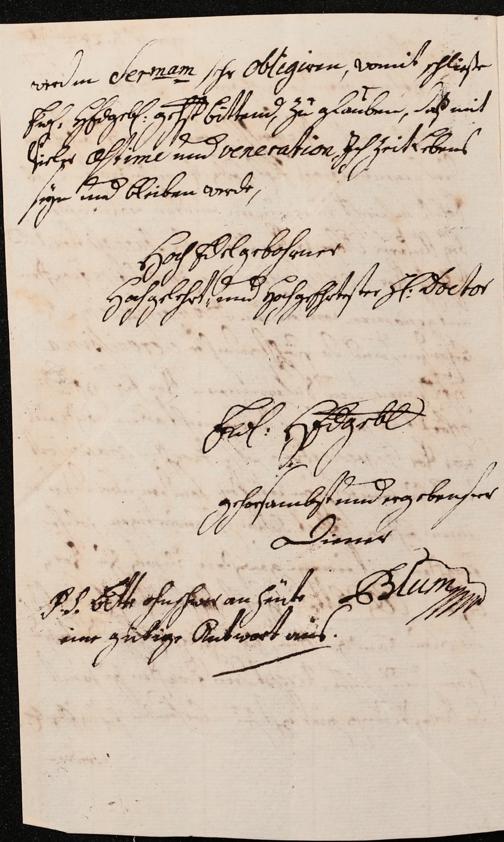 werden Sermam sehr obligiren, womit schließe
Ewl. Hfdgebl: gehst bittend, zu glauben, daß mit
vieler Estime und veneration, Ich Zeit Lebens
seyn und bleiben werde,
Hoch Edelgebohrner
Hochgelehrt, und Hochgeehrtester H: Doctor
Ewl: Hfdgebl
gehorsambst und ergebenster
Diener
Blum
P.S. bitte ohnschwer an heute
eine gütige Antwort aus.